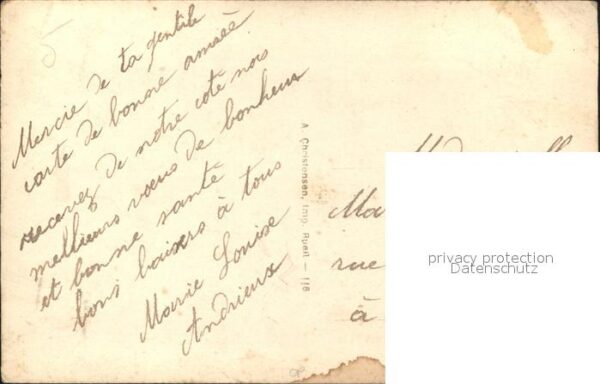 5
Mercie de ta gentile
carte de bonne année
recevez de notre coté nos
meilleurs vœus de bonheur
et bonne santé
bons baisers à tous
Marie Louise
Andrieux
A. Christensen, Imp. Rueil. — 116
rue
à
privacy protection
Datenschutz